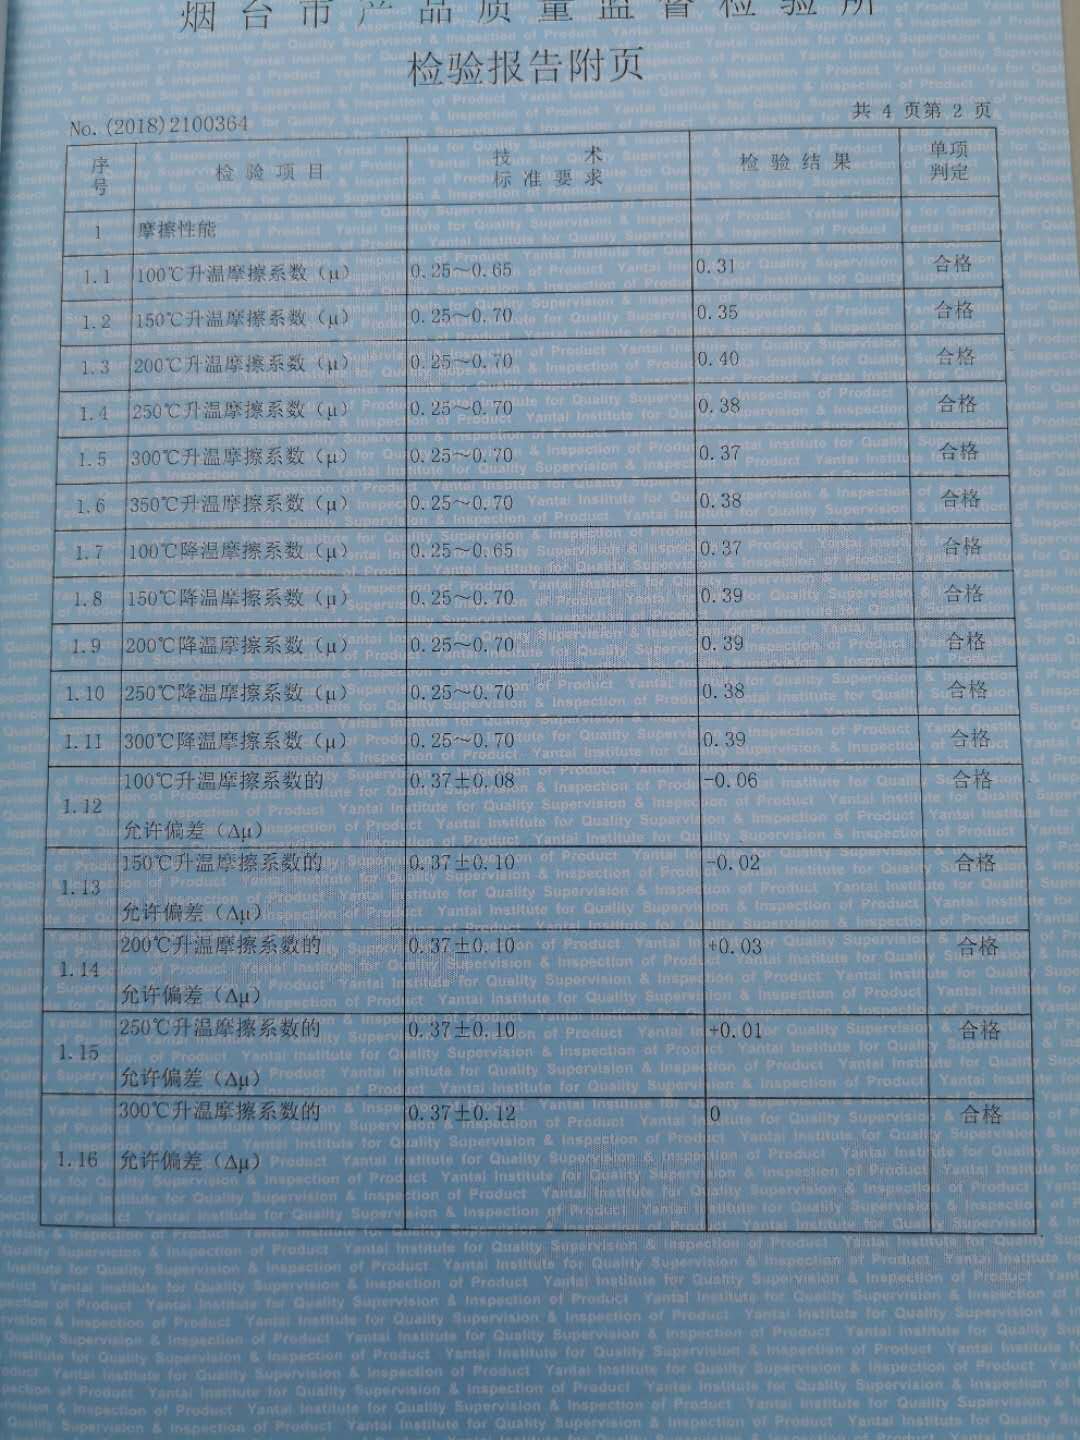 烟台市产品质量监督检验所
检验报告附页
No.(2018)2100364
共 4 页第 2 页
序号 检 验 项 目 技 术 标 准 要 求 检 验 结 果 单项判定
1 摩擦性能
1.1 100℃升温摩擦系数（μ） 0.25～0.65 0.31 合格
1.2 150℃升温摩擦系数（μ） 0.25～0.70 0.35 合格
1.3 200℃升温摩擦系数（μ） 0.25～0.70 0.40 合格
1.4 250℃升温摩擦系数（μ） 0.25～0.70 0.38 合格
1.5 300℃升温摩擦系数（μ） 0.25～0.70 0.37 合格
1.6 350℃升温摩擦系数（μ） 0.25～0.70 0.38 合格
1.7 100℃降温摩擦系数（μ） 0.25～0.65 0.37 合格
1.8 150℃降温摩擦系数（μ） 0.25～0.70 0.39 合格
1.9 200℃降温摩擦系数（μ） 0.25～0.70 0.39 合格
1.10 250℃降温摩擦系数（μ） 0.25～0.70 0.38 合格
1.11 300℃降温摩擦系数（μ） 0.25～0.70 0.39 合格
100℃升温摩擦系数的 0.37±0.08 -0.06 合格
1.12 允许偏差（Δμ）
150℃升温摩擦系数的 0.37±0.10 -0.02 合格
1.13 允许偏差（Δμ）
200℃升温摩擦系数的 0.37±0.10 +0.03 合格
1.14 允许偏差（Δμ）
250℃升温摩擦系数的 0.37±0.10 +0.01 合格
1.15 允许偏差（Δμ）
300℃升温摩擦系数的 0.37±0.12 0 合格
1.16 允许偏差（Δμ）
Yantai Institute for Quality Supervision & Inspection of Product